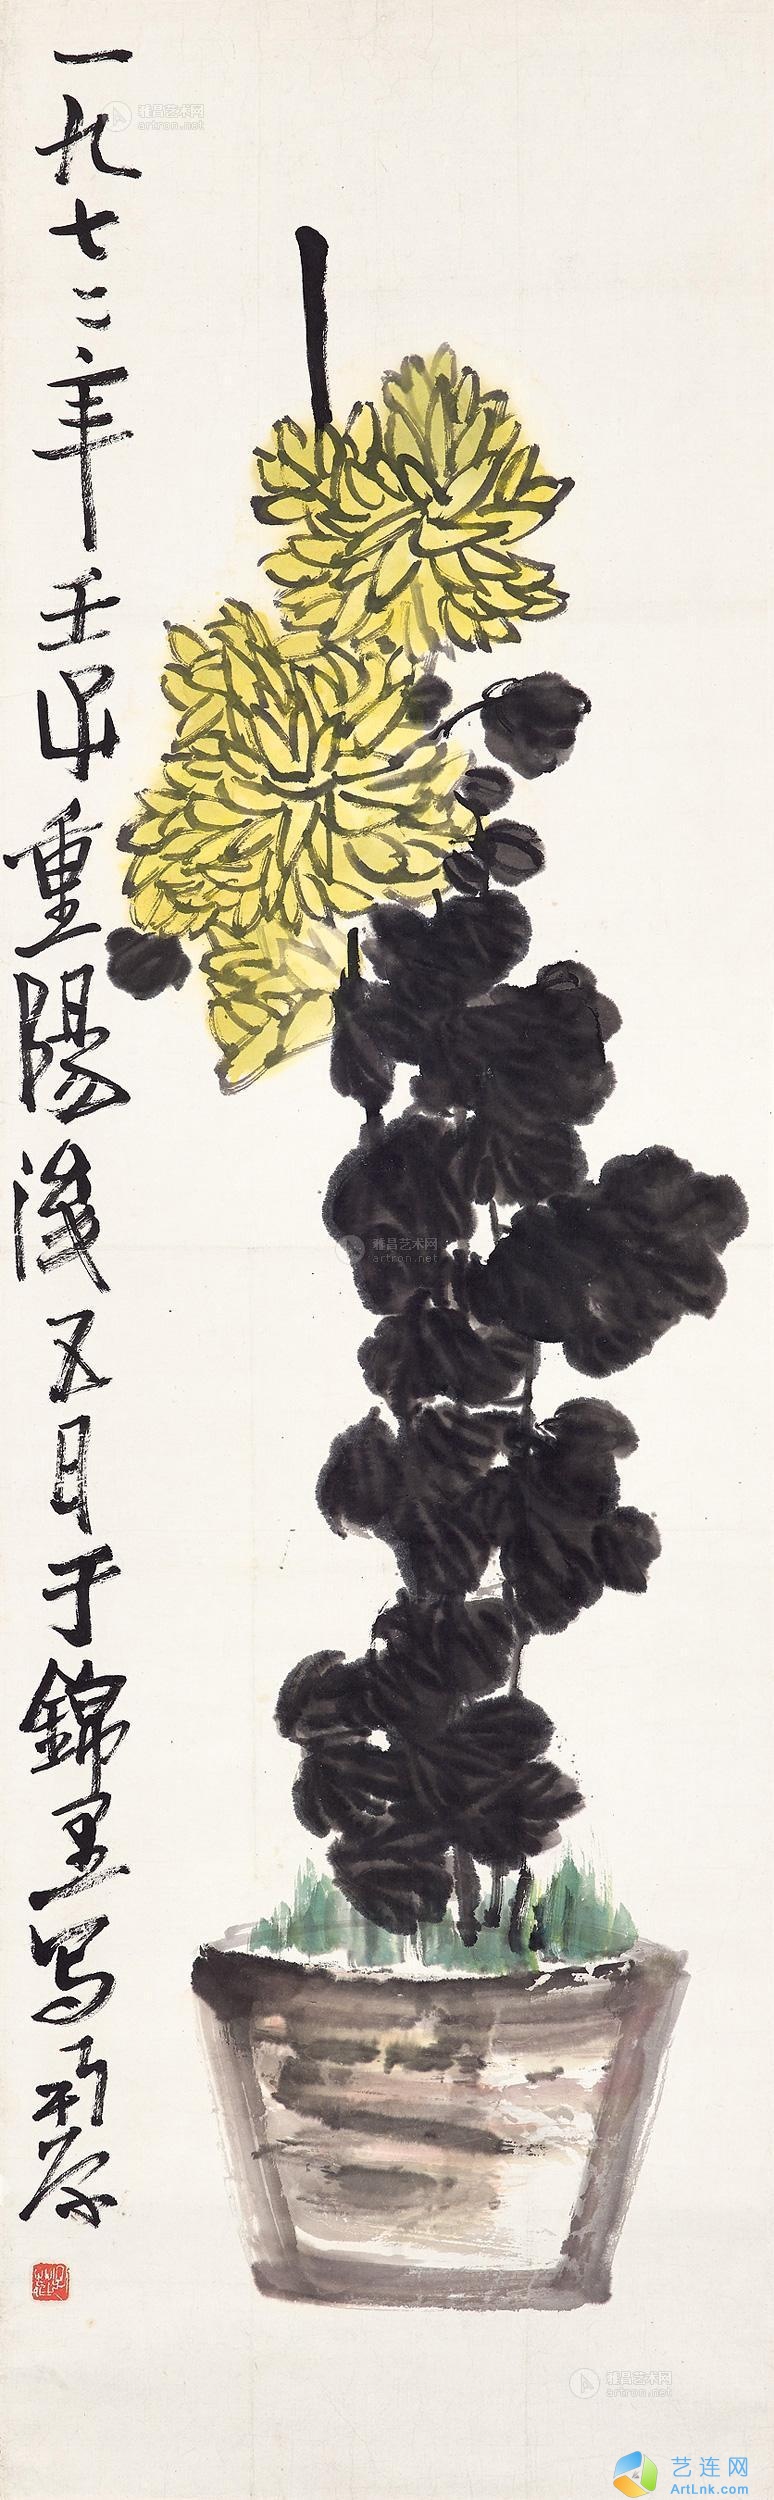 一九七二年壬子重陽後五日于錦里写
雅昌艺术网
artron.net
雅昌艺术网
artron.net
雅昌艺术网
artron.net
艺连网
ArtLnk.com